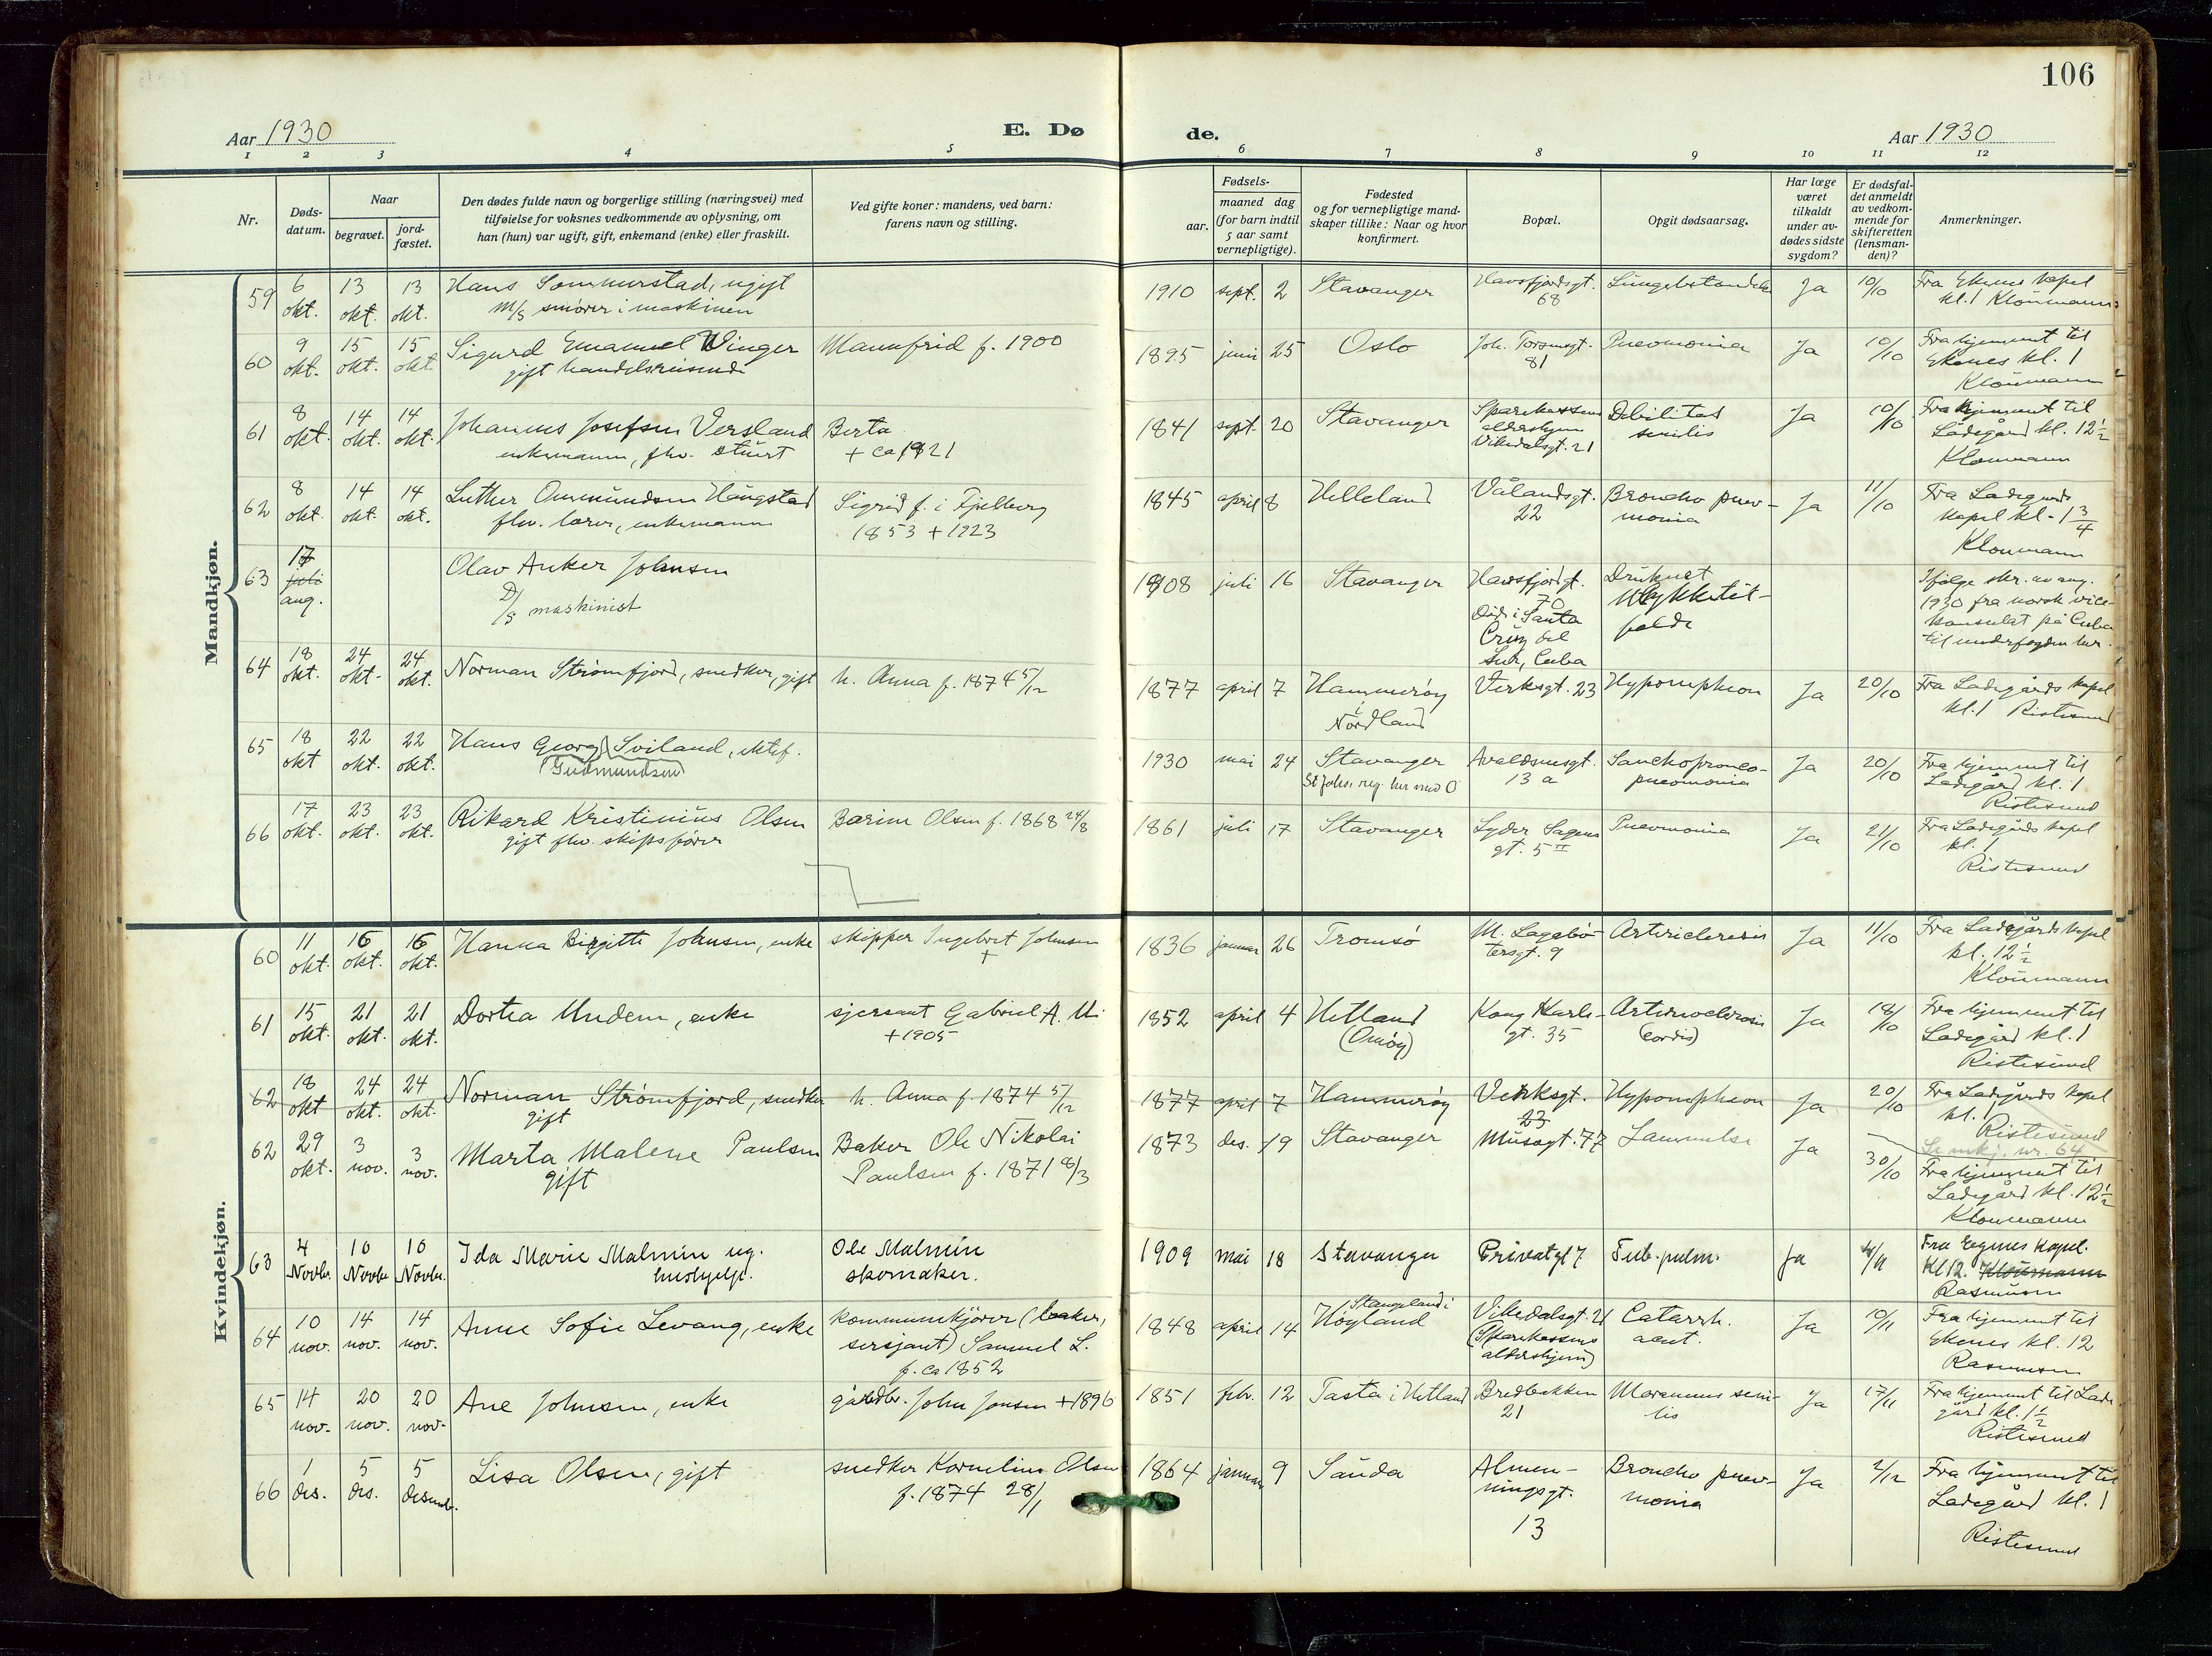 106
Aar 1930
E. Dø
de.
Aar 1930
1 2 3 4 5 6 7 8 9 10 11 12
Nr.
Døds-
datum.
Naar
begravet.
jord-
fæstet.
Den dødes fulde navn og borgerlige stilling (næringsvei) med
tilføielse for voksnes vedkommende av oplysning, om
han (hun) var ugift, gift, enkemand (enke) eller fraskilt.
Ved gifte koner: mandens, ved barn:
farens navn og stilling.
Fødsels-
aar.
maaned dag
(for barn indtil
5 aar samt
vernepligtige).
Fødested
og for vernepligtige mand-
skaper tillike: Naar og hvor
konfirmert.
Bopæl.
Opgit dødsaarsag.
Har læge
været
tilkaldt
under av-
dødes sidste
sygdom?
Er dødsfal-
det anmeldt
av vedkom-
mende for
skifteretten
(lensman-
den)?
Anmerkninger.
Mandkjøn.
59 6 okt. 13 okt. 13 okt. Hans Sommerstad, ugift
M/S smører i maskinen
1910 sept. 2 Stavanger Havsfjordsgt. 68 Ja 10/10 Fra Ekenes kapel
kl. 1 Kloumann
60 9 okt. 15 okt. 15 okt. Sigurd Emanuel Winger
gift handelsreisende
Mannfrid f. 1900
1895 juni 25 Oslo Joh. Torsmsgt. 81 Pneomonia Ja 10/10 Fra hjemmet til
Ekenes kl. 1
Kloumann
61 8 okt. 14 okt. 14 okt. Johannes Josefsen Versland
enkemann, fhv. stuert
Berta
+ ca 1921
1841 sept. 20 Stavanger Sparekassens
aldershjem
Vikedalsgt. 21
Debilitas
senilis
Ja 10/10 Fra hjemmet til
Ladegård kl. 12 1/2
Kloumann
62 8 okt. 14 okt. 14 okt. Luther Ommundsen Haugstad
fhv. lærer, enkemann
Sigrid f. i Fjelberg
1853 + 1923
1845 april 8 Helleland Vålandsgt.
22
Broncho pnev-
monia
Ja 11/10 Fra Ladegårds
kapel kl. 1 3/4
Kloumann
63 17 juli aug. Olav Anker Johnsen
D/S maskinist
1908 juli 16 Stavanger Havsfjordgt.
70
Død i Santa
Cruz del
Sur, Cuba
Druknet
Ulykkestil-
felde
Ifølge skr. av aug.
1930 fra norsk vice-
konsulat på Cuba
til underfogden her.
64 18 okt. 24 okt. 24 okt. Norman Strømfjord, snedker, gift
h. Anna f. 1874 5/12
1877 april 7 Hammerøy
i Nordland
Verksgt. 23 Ja 20/10 Fra Ladegårds kapel
kl. 1 Ristesund
65 18 okt 22 okt. 22 okt. Hans Georg Sviland, ektef.
(Gudmundsen)
1930 mai 24 Stavanger
St Johs. reg. her med O
Avaldsnesgt.
13 a
pneomonia
Ja 20/10 Fra hjemmet til
Ladegård kl. 1
Ristesund
66 17 okt. 23 okt. 23 okt. Rikard Kristinius Olsen
gift fhv. skipsfører
Barine Olsen f. 1868 24/8
1861 juli 17 Stavanger Lyder Sagens
gt. 5 II
Pneomonia Ja 21/10 Fra Ladegårds kapel
kl. 1
Ristesund
Kvindekjøn.
60 11 okt. 16 okt. 16 okt. Hanna Birgitte Johnsen, enke
skipper Ingebret Johnsen
+
1836 januar 26 Tromsø M. Lagabø-
tersgt. 9
Ja 11/10 Fra Ladegårds kapel
kl. 12 1/2
Kloumann
61 15 okt. 21 okt. 21 okt. Dortea Undem, enke
sjersant Gabriel A. U.
+ 1905
1852 april 4 Hetland
(Omøy)
Kong Karls-
gt. 35
(cordis)
Ja 18/10 Fra hjemmet til
Ladegård kl. 1
Ristesund
62 18 okt 24 okt. 24 okt. Norman Strømfjord, snedker
gift
h. Anna f. 1874 5/12
1877 april 7 Hammerøy Verksgt.
23
Ja 20/10 Fra Ladegårds kapel
kl. 1
Ristesund
Se mkj. nr. 64
62 29 okt. 3 nov. 3 nov. Marta Malene Paulsen
gift
Baker Ole Nikolai
Paulsen f. 1871 8/3
1873 des. 19 Stavanger Musegt. 77 Lammelse Ja 30/10 Fra hjemmet til
Ladegård kl. 12 1/2
Kloumann
63 4 Novbr. 10 Novbr. 10 Novbr. Ida Marie Malmin ug.
hushjelp.
Ole Malmin
skomaker.
1909 mai 18 Stavanger Privatgt 7 Tub. pulm. Ja Fra Egenes Kapel.
Kl 12. Kloumann
Rasmussen
64 10 nov. 14 nov. 14 nov. Anne Sofie Levang, enke
kommunekjører (baker,
sersjant) Samuel L.
f. ca 1852
1848 april 14 Stangeland i
Høyland
Vikedalsgt. 21
(Sparekassens
aldershjem)
Catarrh.
acut.
Ja 10/11 Fra hjemmet til
Ekenes kl. 12
Rasmussen
65 14 nov. 20 nov. 20 nov. Ane Johnsen, enke
gårdbr. John Jonsen + 1896
1851 febr. 12 Tasta i Hetland Bredbakken
21
Marasmus seni-
lis
Ja 17/11 Fra hjemmet til Lade-
gård kl. 1 1/2
Ristesund
66 1 des. 5 des. 5 desemb. Lisa Olsen, gift
snedker Kornelius Olsen
f. 1874 28/1
1864 januar 9 Sauda Almen-
ningsgt.
13
Broncho pnev-
monia
Ja 2/12 Fra hjemmet til
Ladegård kl. 1
Ristesund